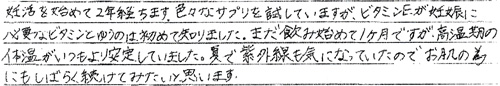 妊活を始めて2年経ちます。色々なサプリを試していますが、ビタミンEが妊娠に
必要なビタミンとゆうのは初めて知りました。まだ飲み始めて1ヶ月ですが高温期の
体温がいつもより安定していました。夏で紫外線も気になっていたのでお肌の為
にもしばらく続けてみたいと思います。